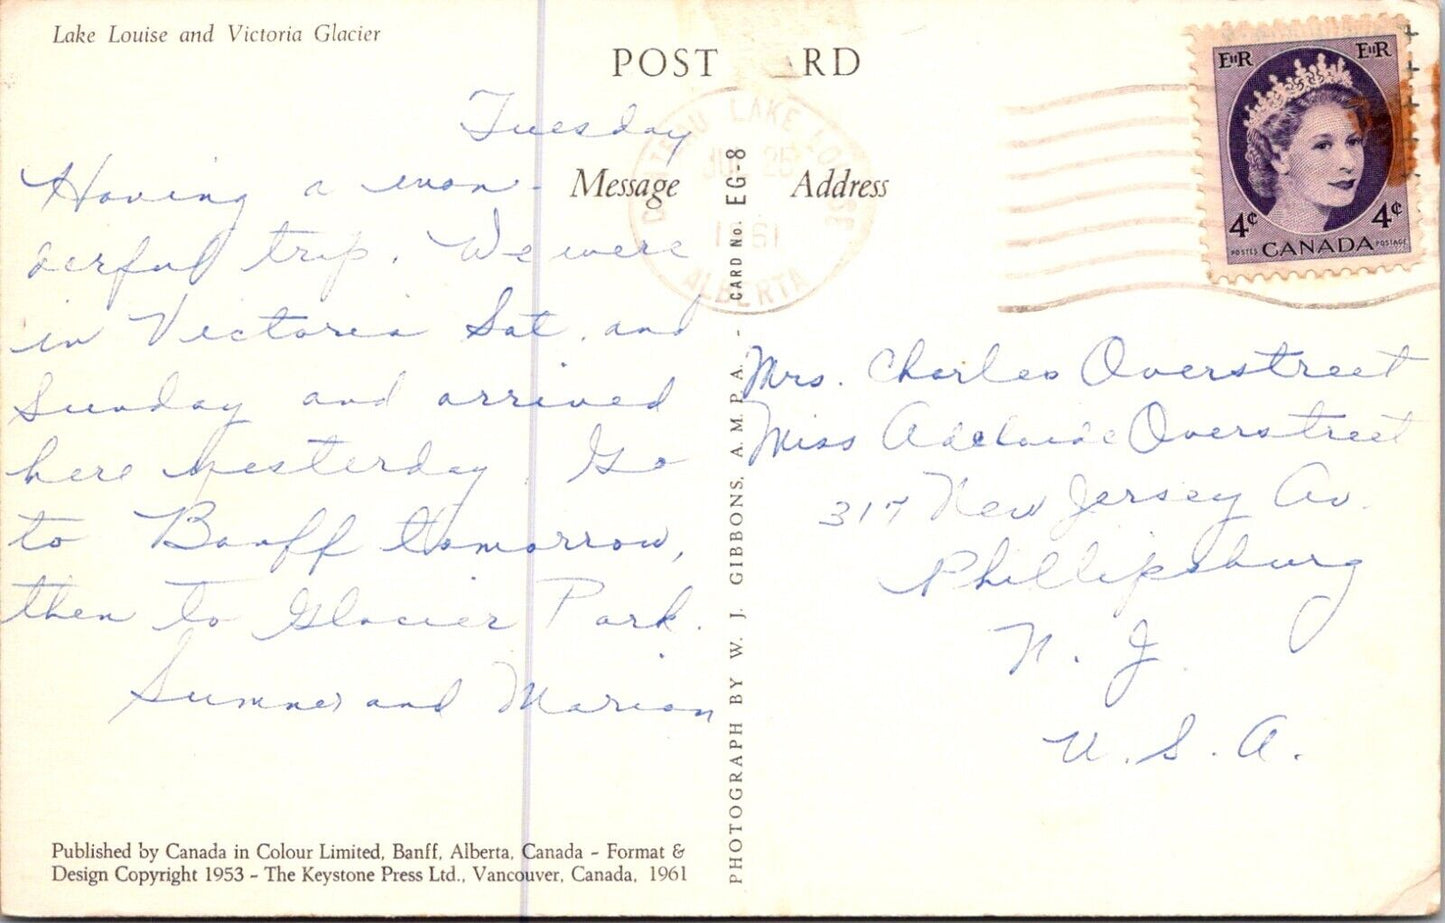 Lake Louise and Victoria Glacier
POST ARD
Message
Address
Tuesday
Having a won-
derful trip. We were
in Victoria Sat. and
Sunday and arrived
here yesterday. Go
to Banff tomorrow,
then to Glacier Park.
Sumner and Marion
CHATEAU LAKE LOUISE
JUL 25
1961
ALBERTA
EIIR EIIR
4¢ 4¢
POSTES CANADA POSTAGE
Mrs. Charles Overstreet
Miss Adelaide Overstreet
317 New Jersey Av.
Phillipsburg
N. J.
U. S. A.
PHOTOGRAPH BY W. J. GIBBONS, A.M.P.A. - CARD No. EG-8
Published by Canada in Colour Limited, Banff, Alberta, Canada - Format &
Design Copyright 1953 - The Keystone Press Ltd., Vancouver, Canada, 1961